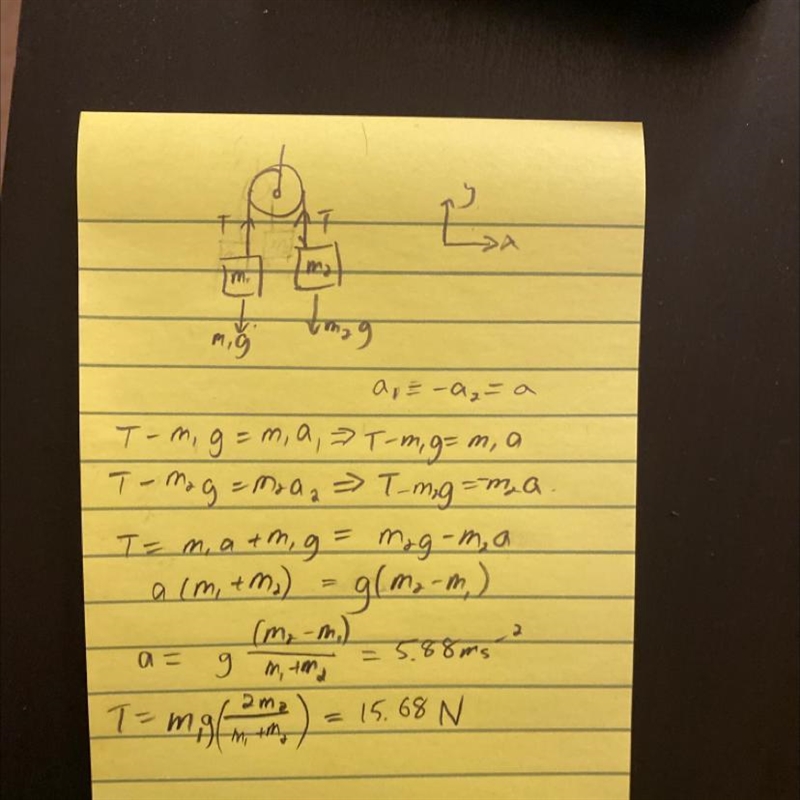 y
T T
x
m₁ m₂
m₁g m₂g
a₁ = -a₂ = a
T - m₁g = m₁a₁ ⇒ T - m₁g = m₁a
T - m₂g = m₂a₂ ⇒ T - m₂g = -m₂a.
T = m₁a + m₁g = m₂g - m₂a
a(m₁ + m₂) = g(m₂ - m₁)
a = g (m₂ - m₁)/(m₁ + m₂) = 5.88 ms⁻²
T = m₁g(2m₂/(m₁ + m₂)) = 15.68 N